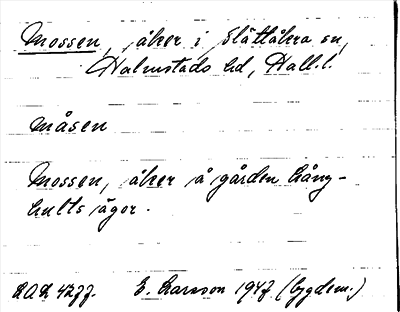 Mossen, åker i Slättåkra sn,
Halmstads hd, Hall. l.
måsen
Mossen, åker å gården Lång-
hults ägor.
E. Larsson 1947 (bygdem.)